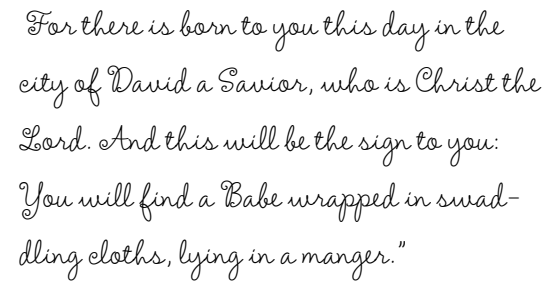 For there is born to you this day in the
city of David a Savior, who is Christ the
Lord. And this will be the sign to you:
You will find a Babe wrapped in swad-
dling cloths, lying in a manger.”